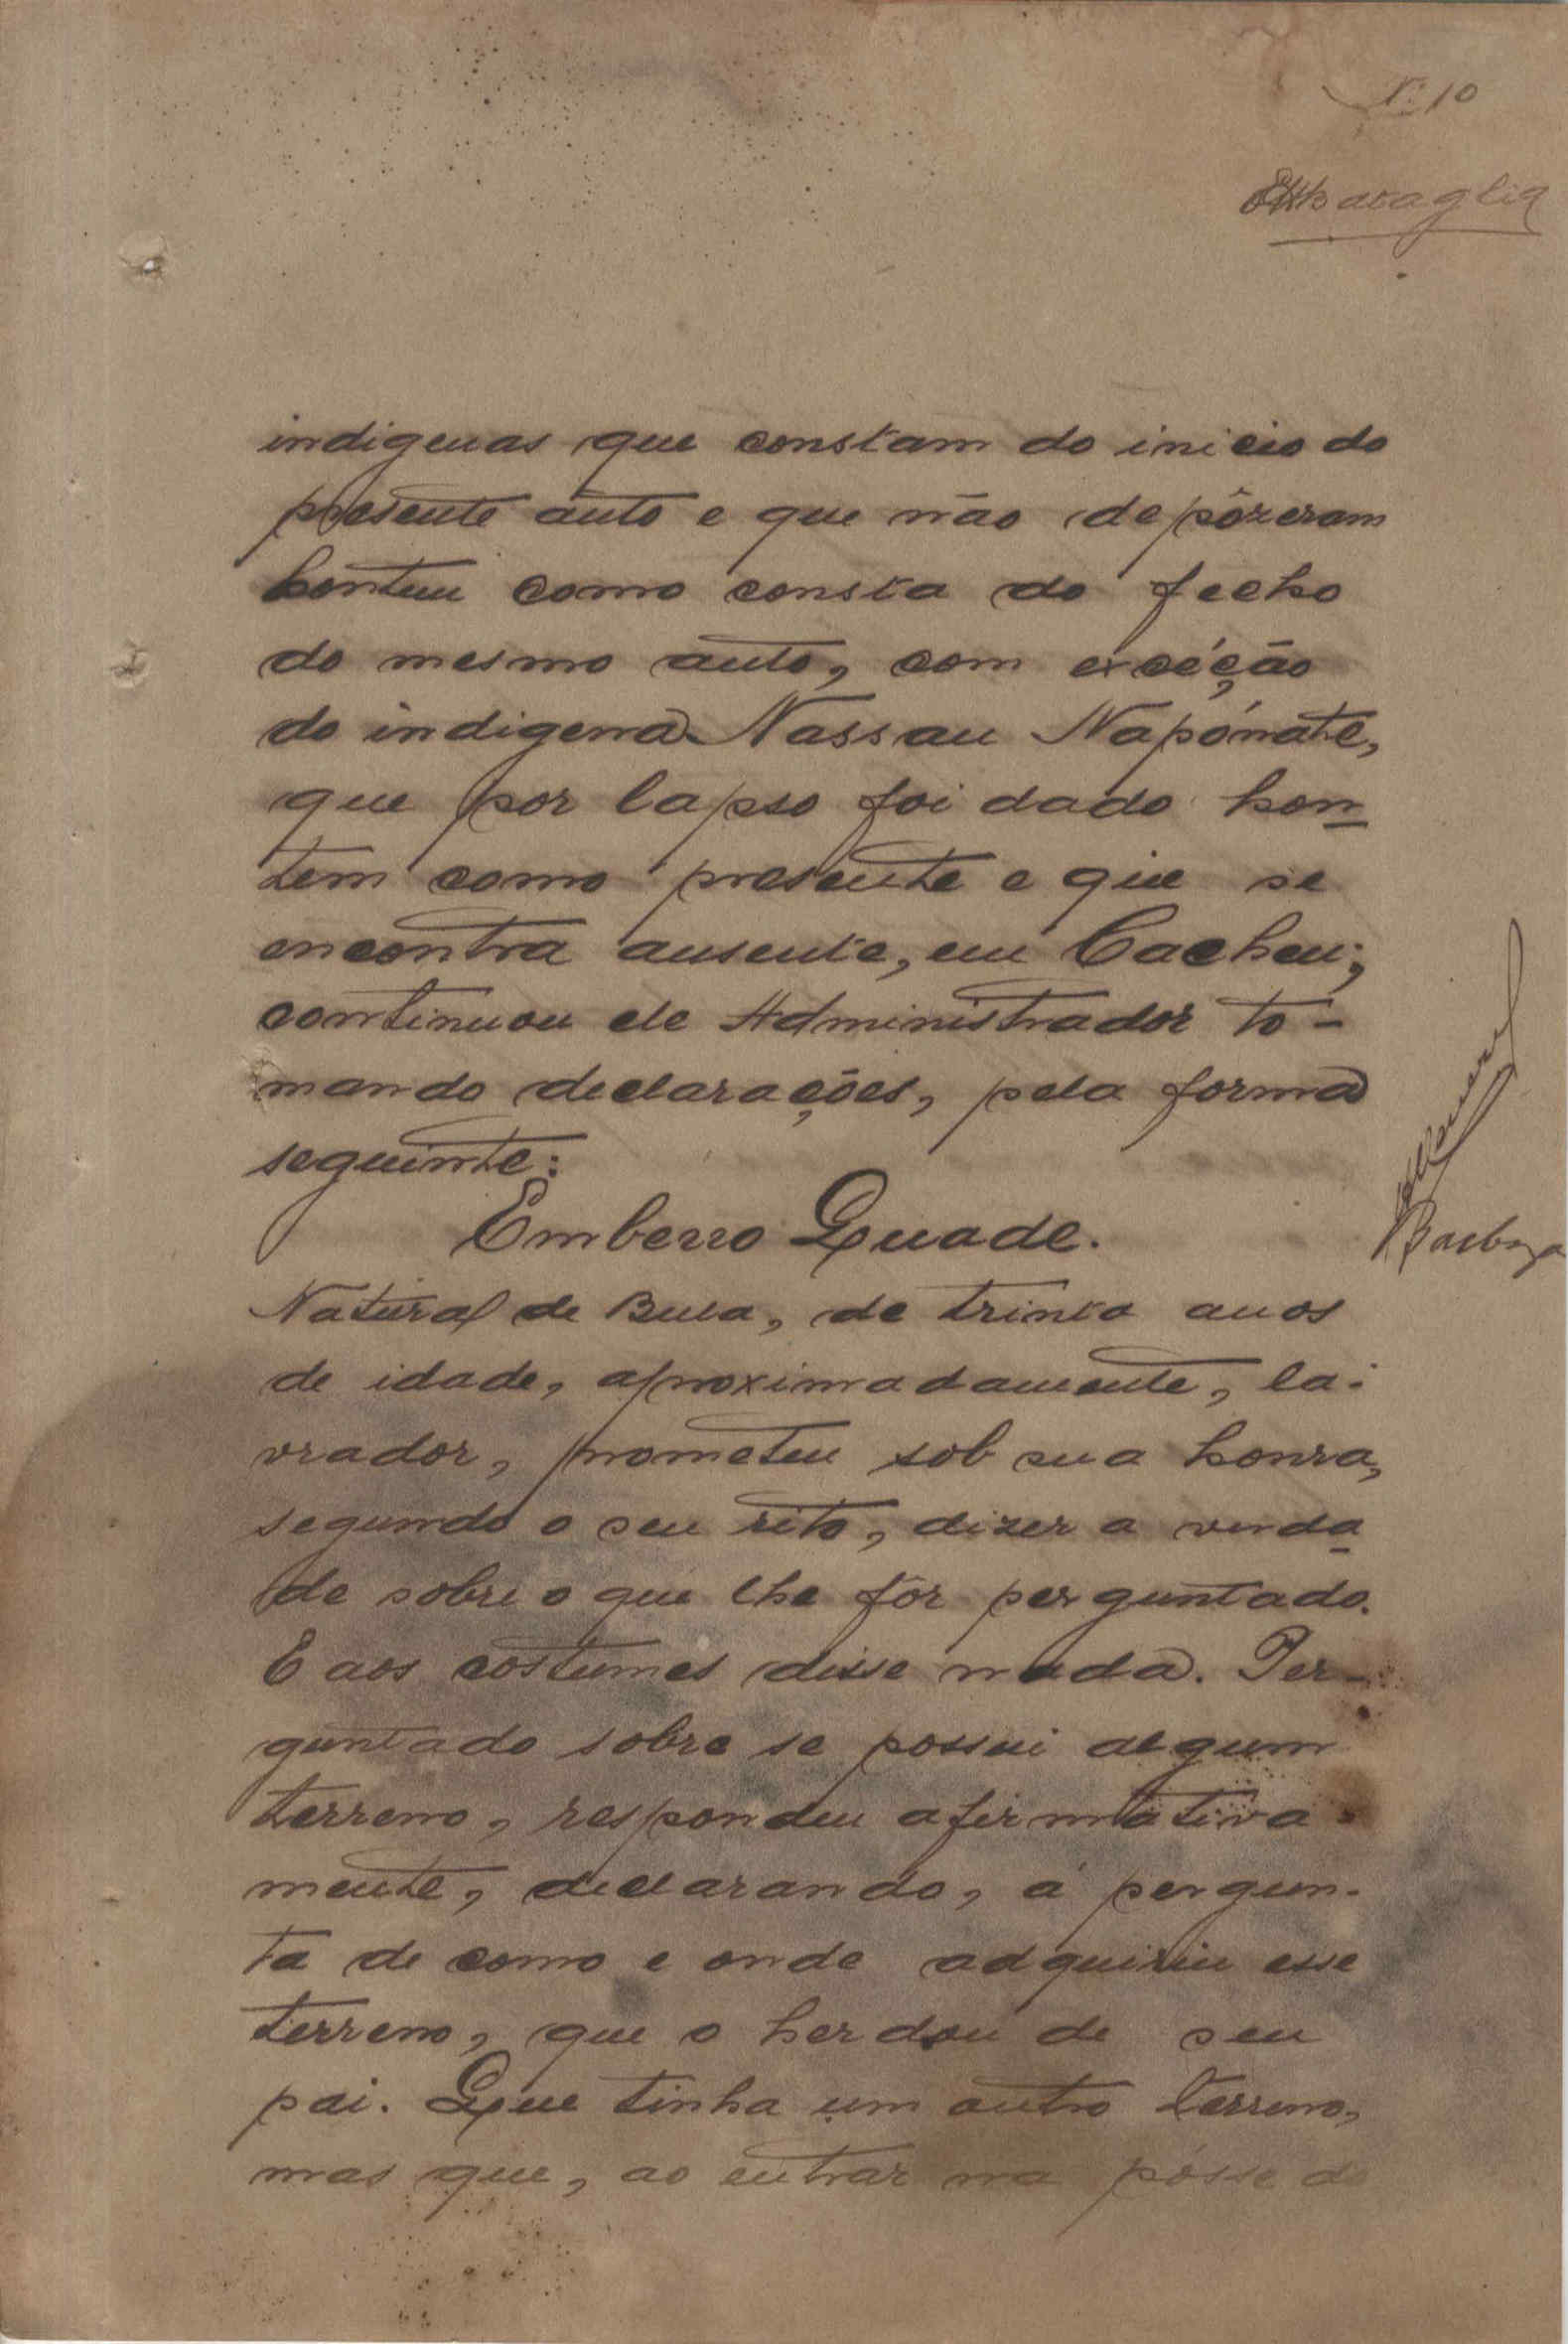 Nº 10
indigenas que constam do inicio do
presente auto e que não depôzeram
hontem como consta do fecho
do mesmo auto, com excéção
do indigena Nassau Napónate,
que por lapso foi dado hon-
tem como presente e que se
encontra ausente, em Cacheu;
continuou ele Administrador to-
mando declarações, pela forma
seguinte:
Emberro Quade.
Natural de Bula, de trinta anos
de idade, aproximadamente, la-
vrador, prometeu sob sua honra,
segundo o seu rito, dizer a verda-
de sobre o que lhe fôr perguntado.
E aos costumes disse nada. Per-
guntado sobre se possui algum
terreno, respondeu afirmativa-
mente, declarando, á pergun-
ta de como e onde adquiriu esse
terreno, que o herdou de seu
pai. Que tinha um outro terreno,
mas que, ao entrar na pósse do
Barbosa